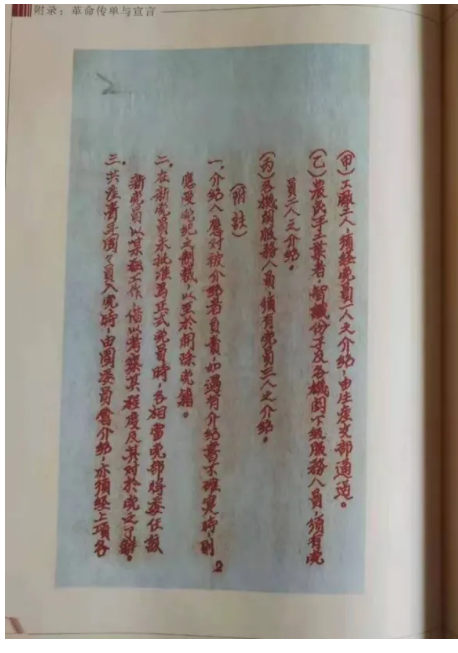 附录：革命传单与宣言
(甲) 工厂工人，须经党员一人之介绍，由生产支部通过。
(乙) 农民手工业者，智识份子及各机关下级服务人员，须有党
员二人之介绍。
(丙) 各机关服务人员，须有党员三人之介绍。
(附註)
一、介绍人应对被介绍者负责如遇有介绍者不确实时，则
应受党纪之制裁，以至於开除党籍。
二、在新党员未批准为正式党员时，各相当党部将委任该
新党员以某种工作，借以考察其程度及其对於党之了解。
三、共产青年团团员入党时，由团委员会介绍，亦须经上项各
2